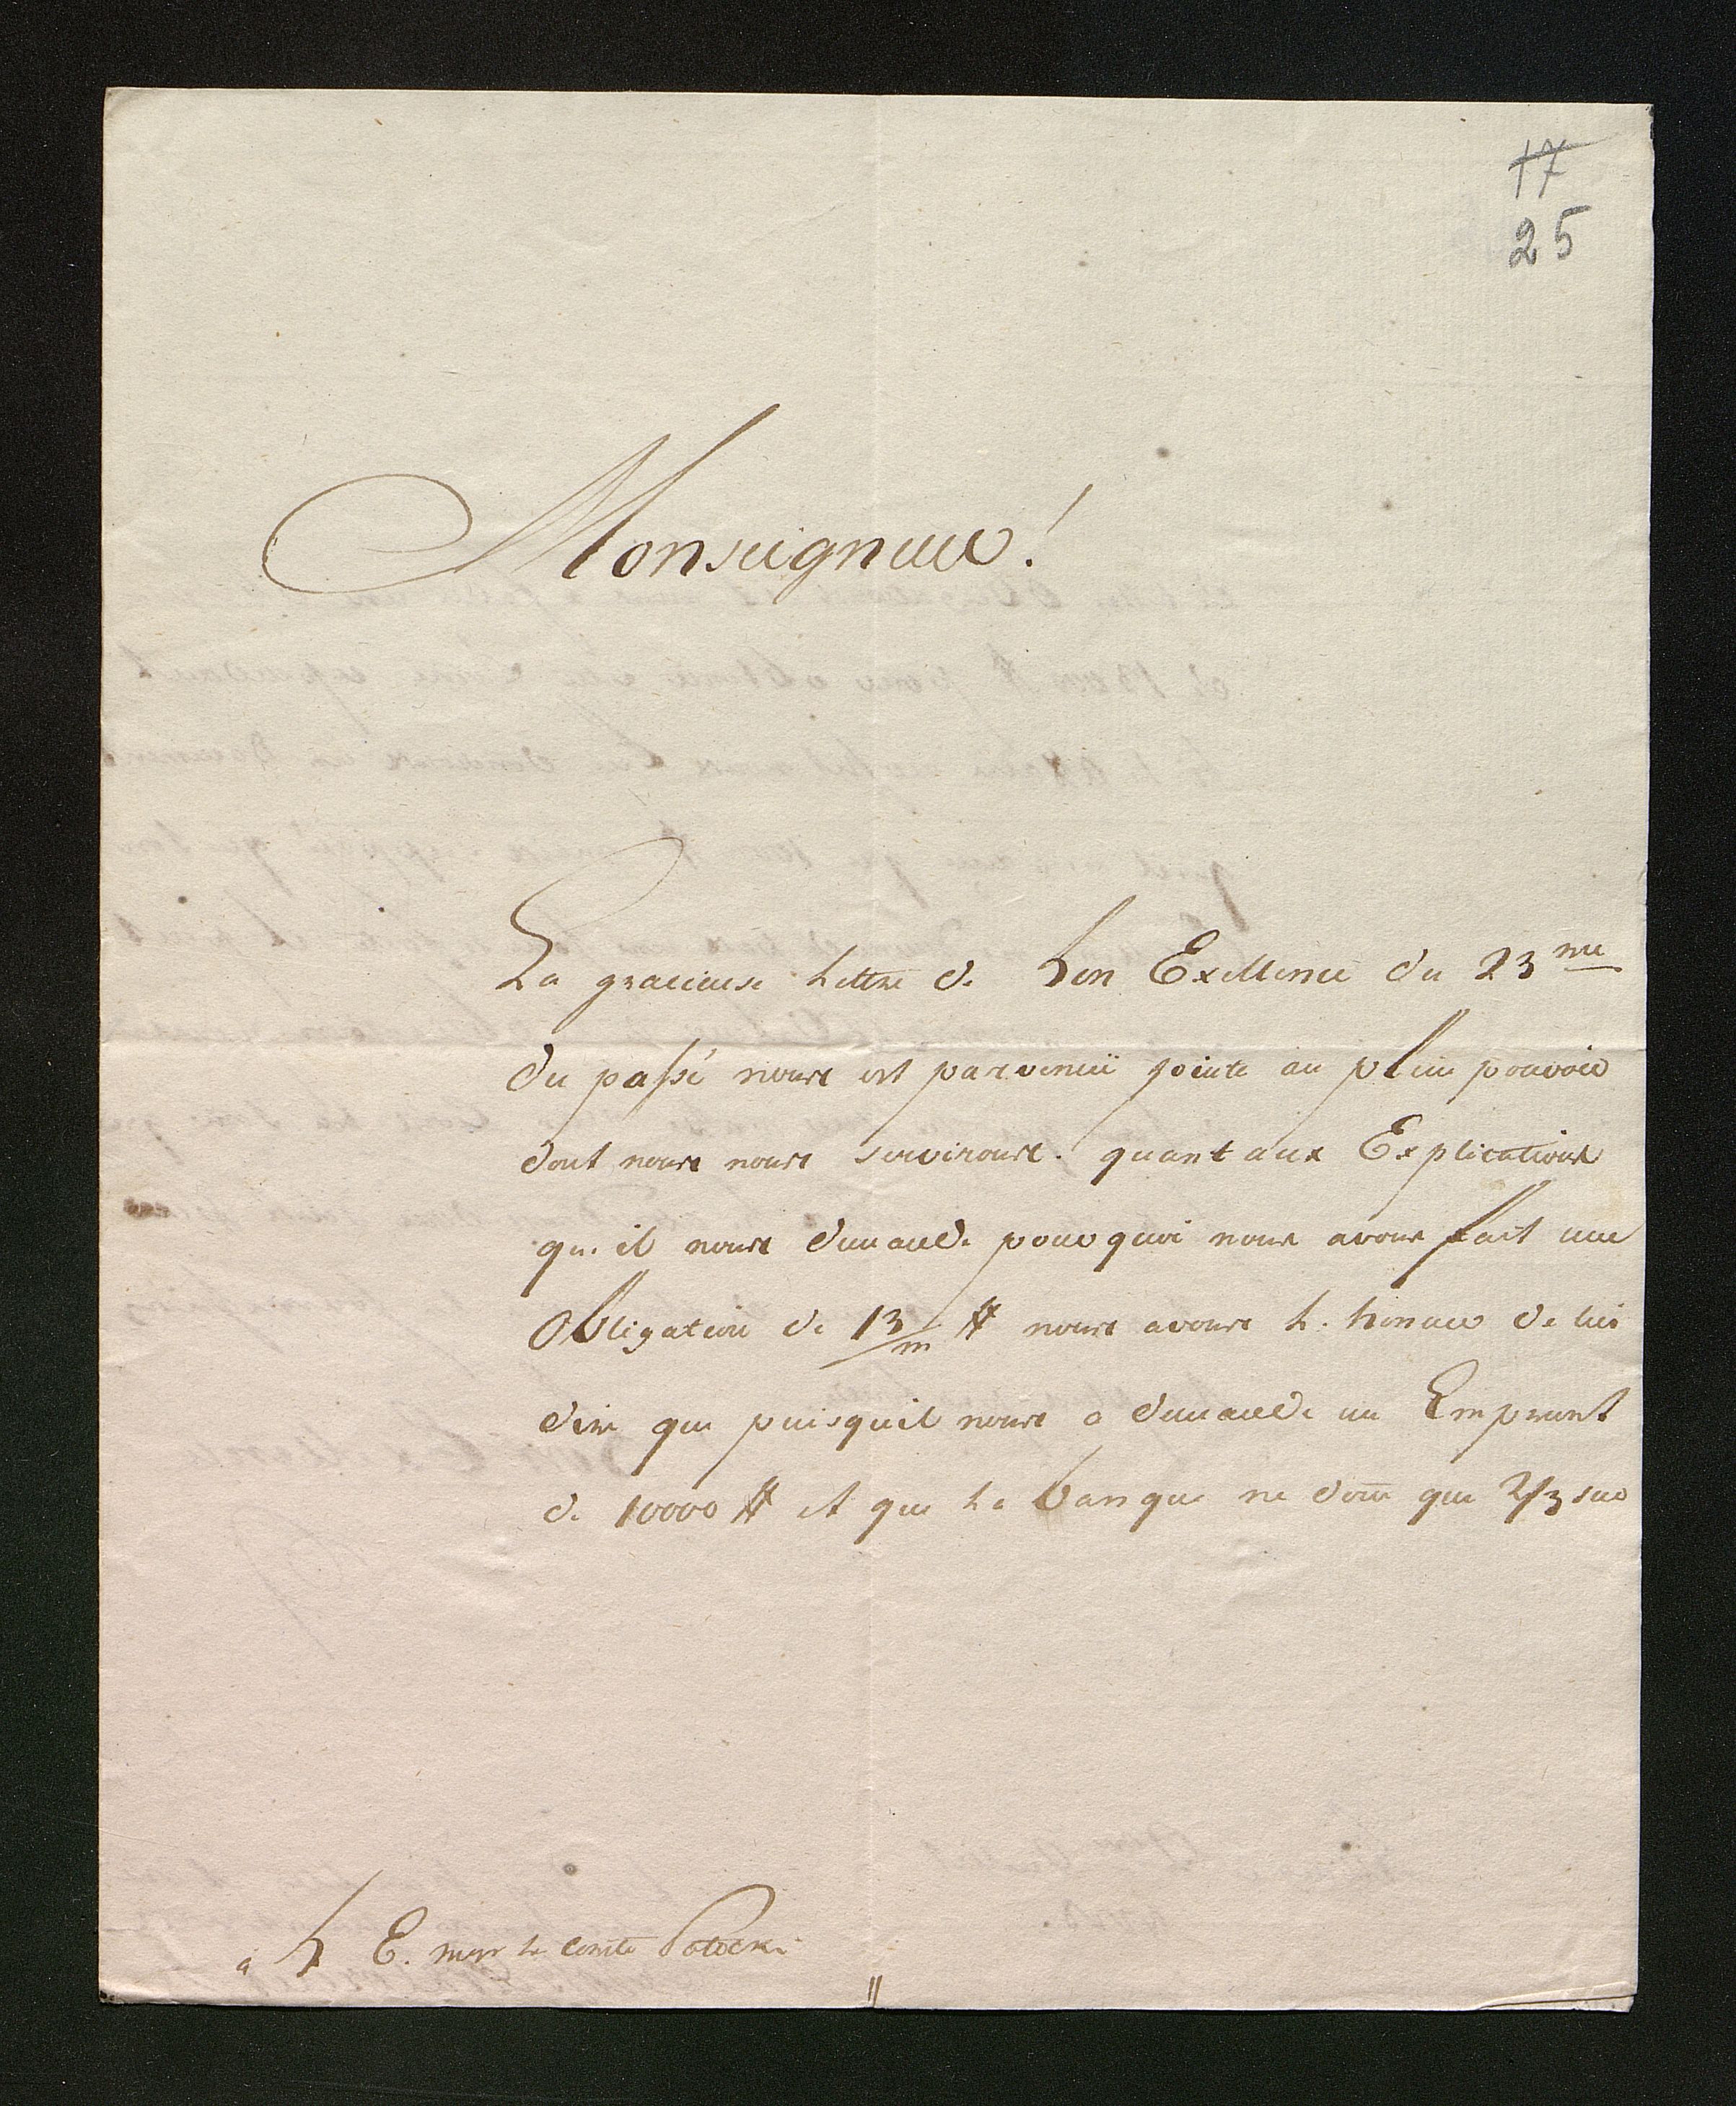 17
25
Monseigneur!
La gracieuse Lettre de Son Exellence du 23 me
du passé nous est parvenuë jointe au plein pouvoir
dont nous nous servirons. quant aux Explications
qu'il nous demande pourquoi nous avons fait une
Obligation de 13/m # nous avons l'honneur de lui
dire que puisqu'il nous a demandé un Emprunt
de 10000 # et que la banque ne done que 2/3 sur
à S E. mgr le comte Potocki